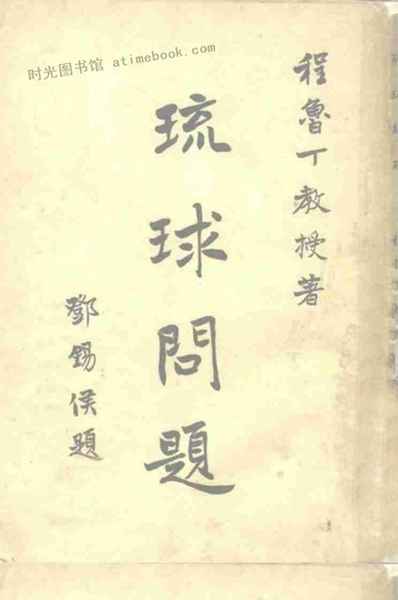 时光图书馆 atimebook.com
程魯丁教授著
琉球問題
鄧錫侯題